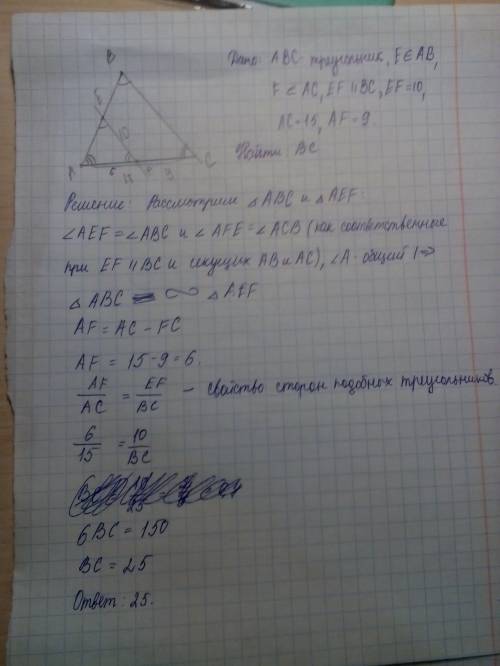 B
Дано: ABC - треугольник, E ∈ AB,
F ∈ AC, EF || BC, EF = 10,
AC = 15, AF = 9.
Найти: BC
E
10
A
C
6
F
9
15
Решение: Рассмотрим △ABC и △AEF:
∠AEF = ∠ABC и ∠AFE = ∠ACB (как соответственные
при EF || BC и секущих AB и AC), ∠A - общий | ⇒
△ABC ∾ △AEF
AF = AC - FC
AF = 15 - 9 = 6.
AF/AC = EF/BC - свойство сторон подобных треугольников
6/15 = 10/BC
6BC = 150
BC = 25
Ответ: 25.